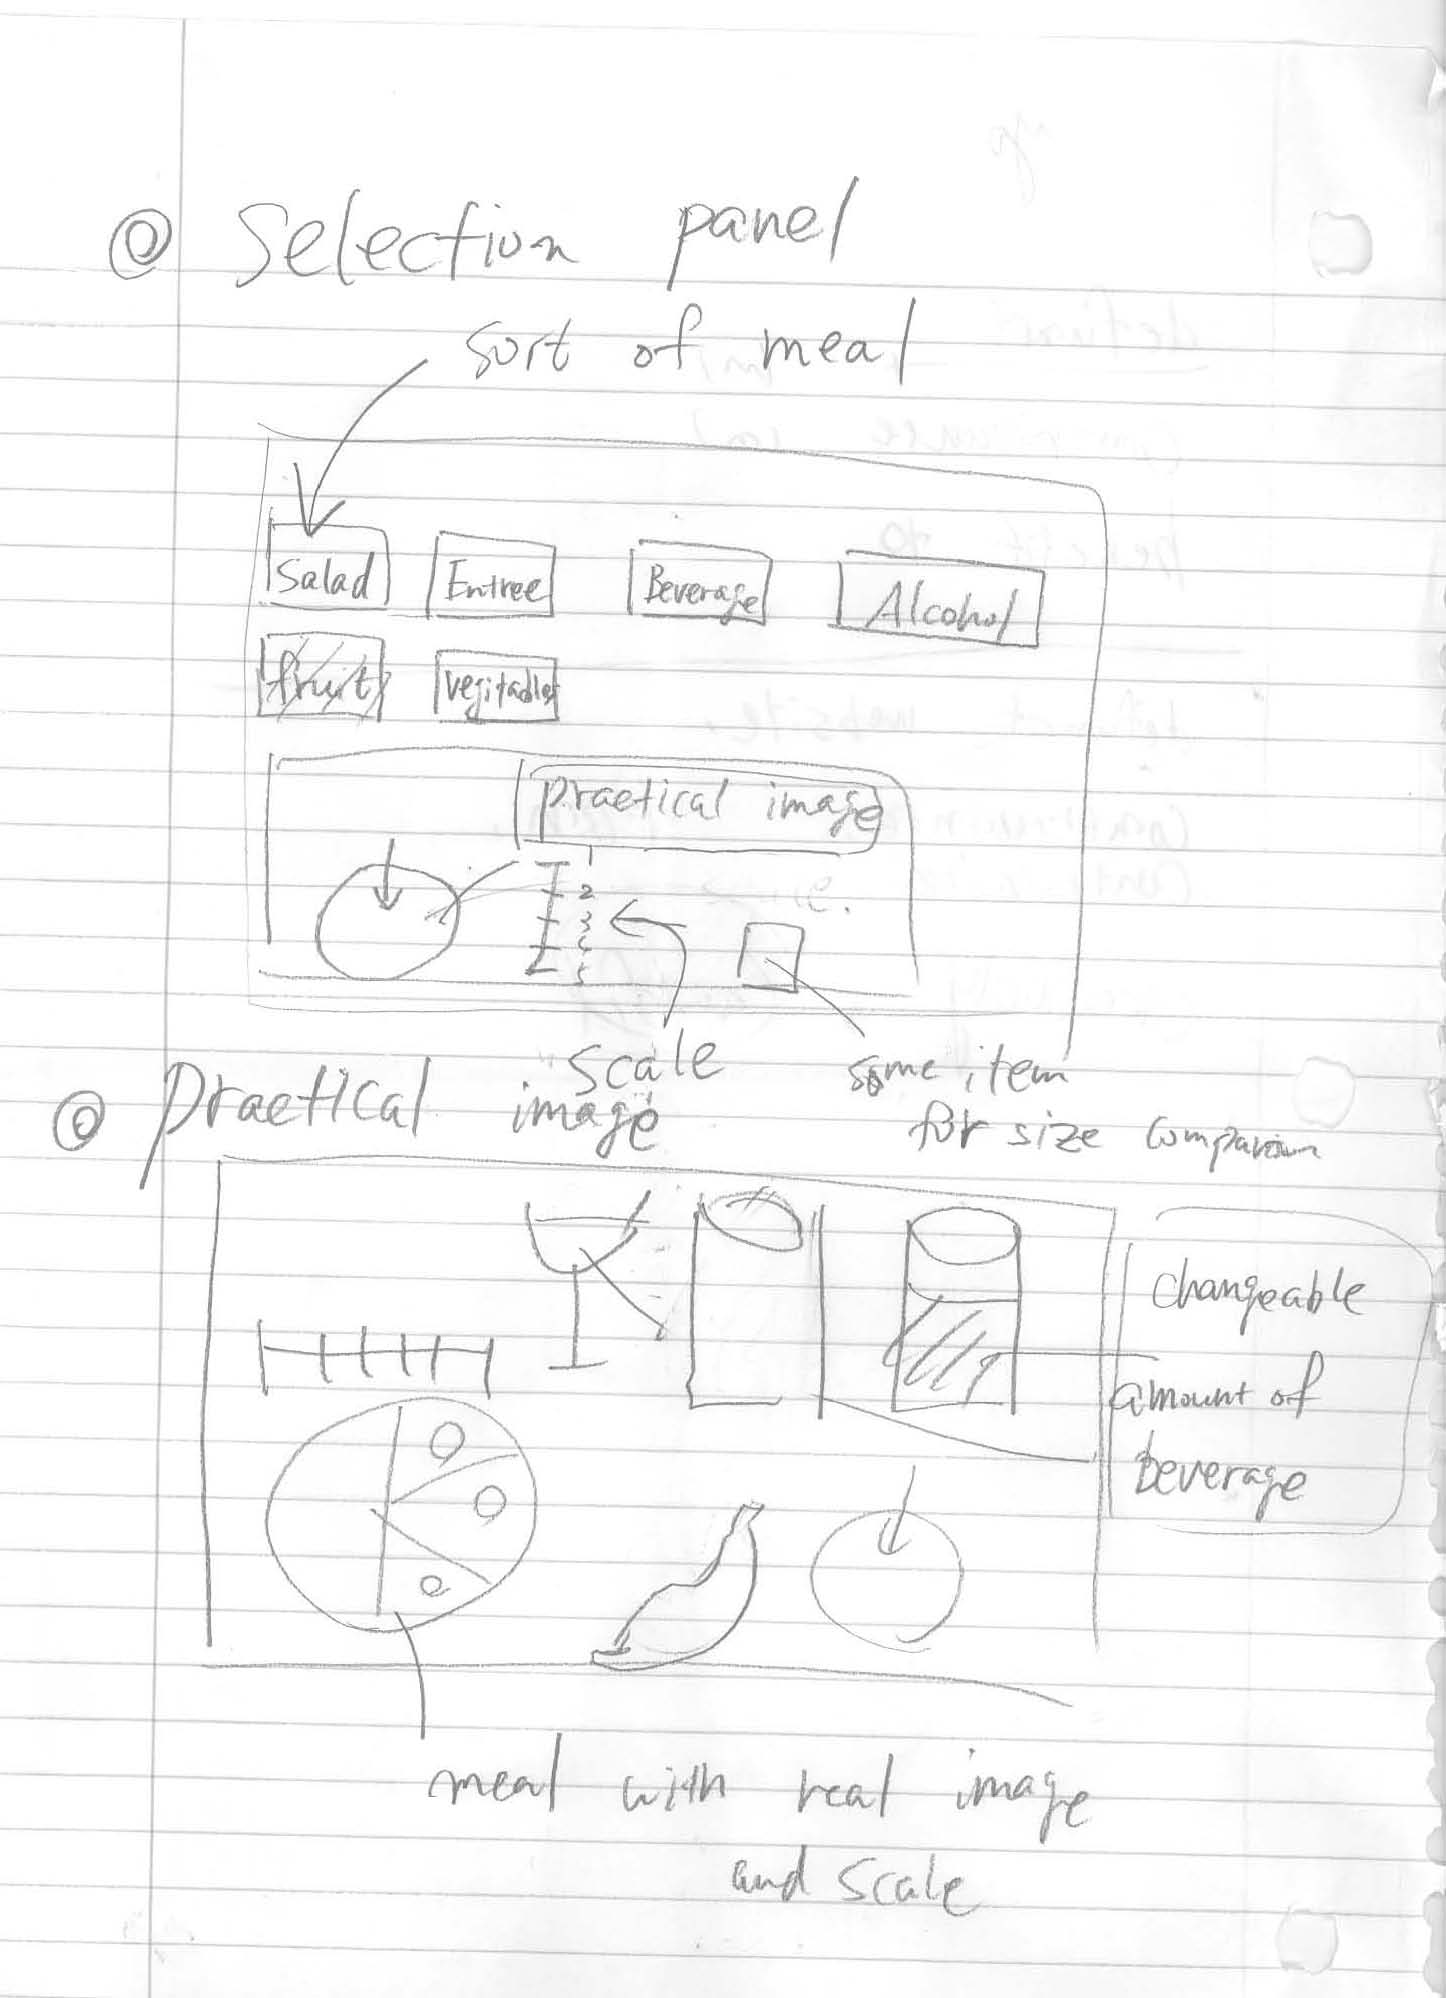 Selection panel
sort of meal
Salad Entree Beverage Alcohol
fruit Vegitables
practical image
1
2
3
4
5
scale
some item
for size comparison
practical image
changeable
amount of
beverage
meal with real image
and scale